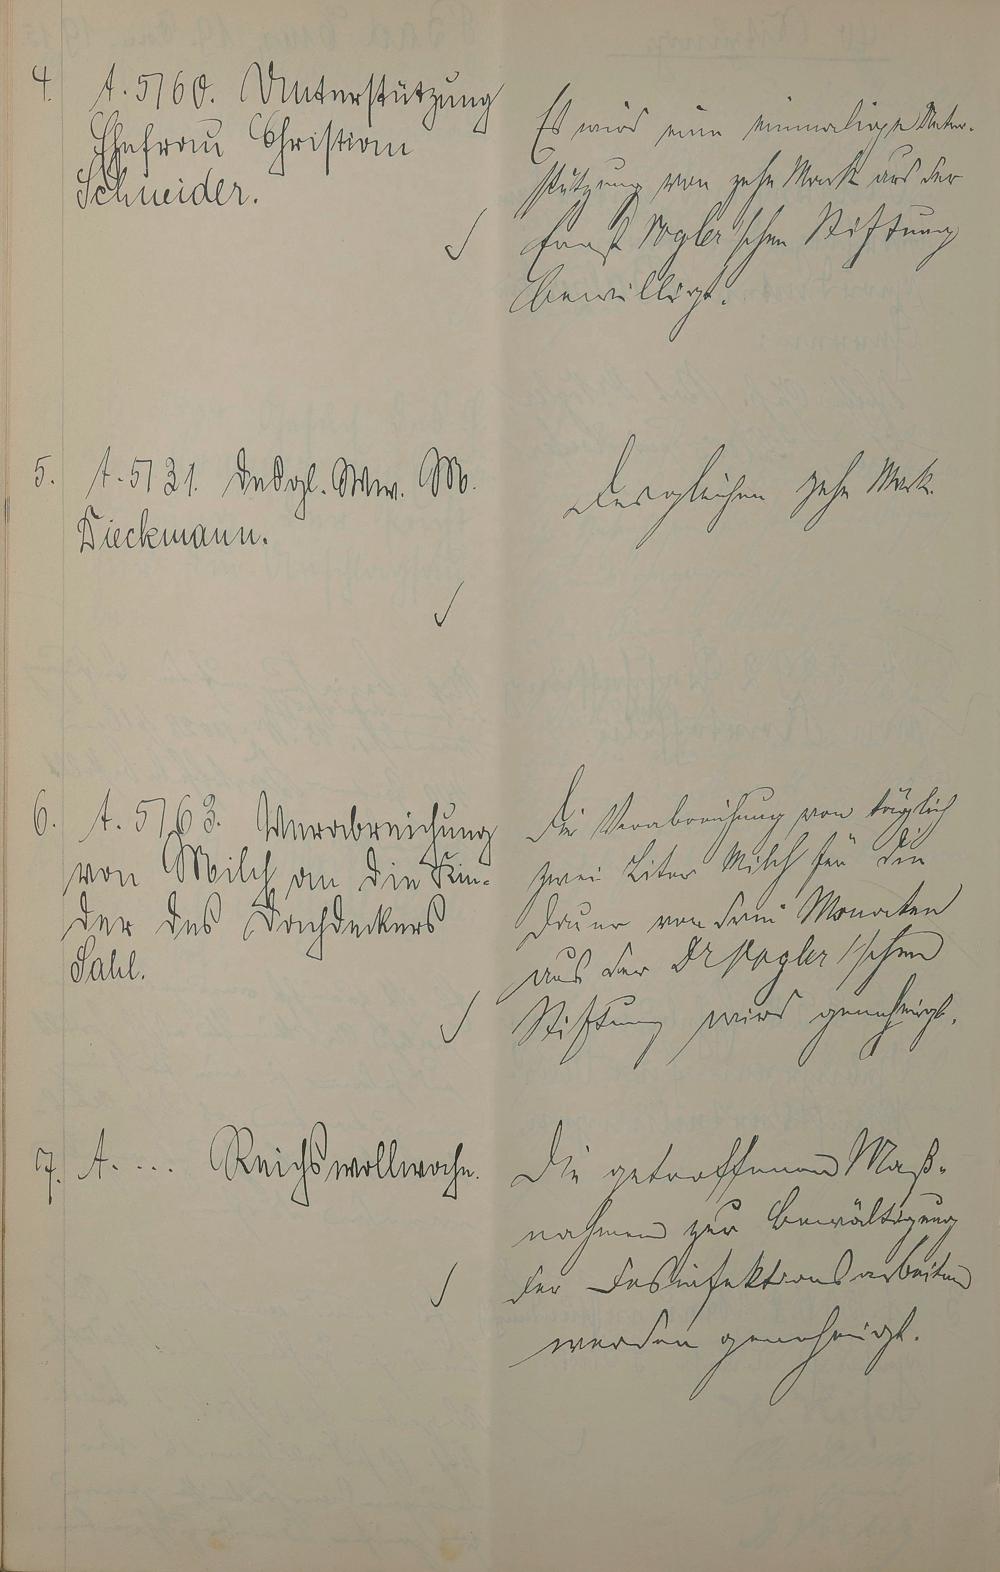 4. A. 5160. Unterstützung
Ehefrau Christian
Schneider.
Es wird eine einmalige Unter-
stützung von zehn Mark aus der
Ernst Vogler'schen Stiftung
bewilligt.
5. A. 5131. Desgl. Ww. M.
Dieckmann.
Desgleichen zehn Mark.
6. A. 5163. Verabreichung
von Milch an die Kin-
der des Dachdeckers
Sahl.
Die Verabreichung von täglich
zwei Liter Milch für die
Dauer von drei Monaten
aus der Dr Vogler'schen
Stiftung wird genehmigt.
7. A. ... Reichswollwoche.
Die getroffenen Maß-
nahmen zur Bewältigung
der Desinfektionsarbeiten
werden genehmigt.